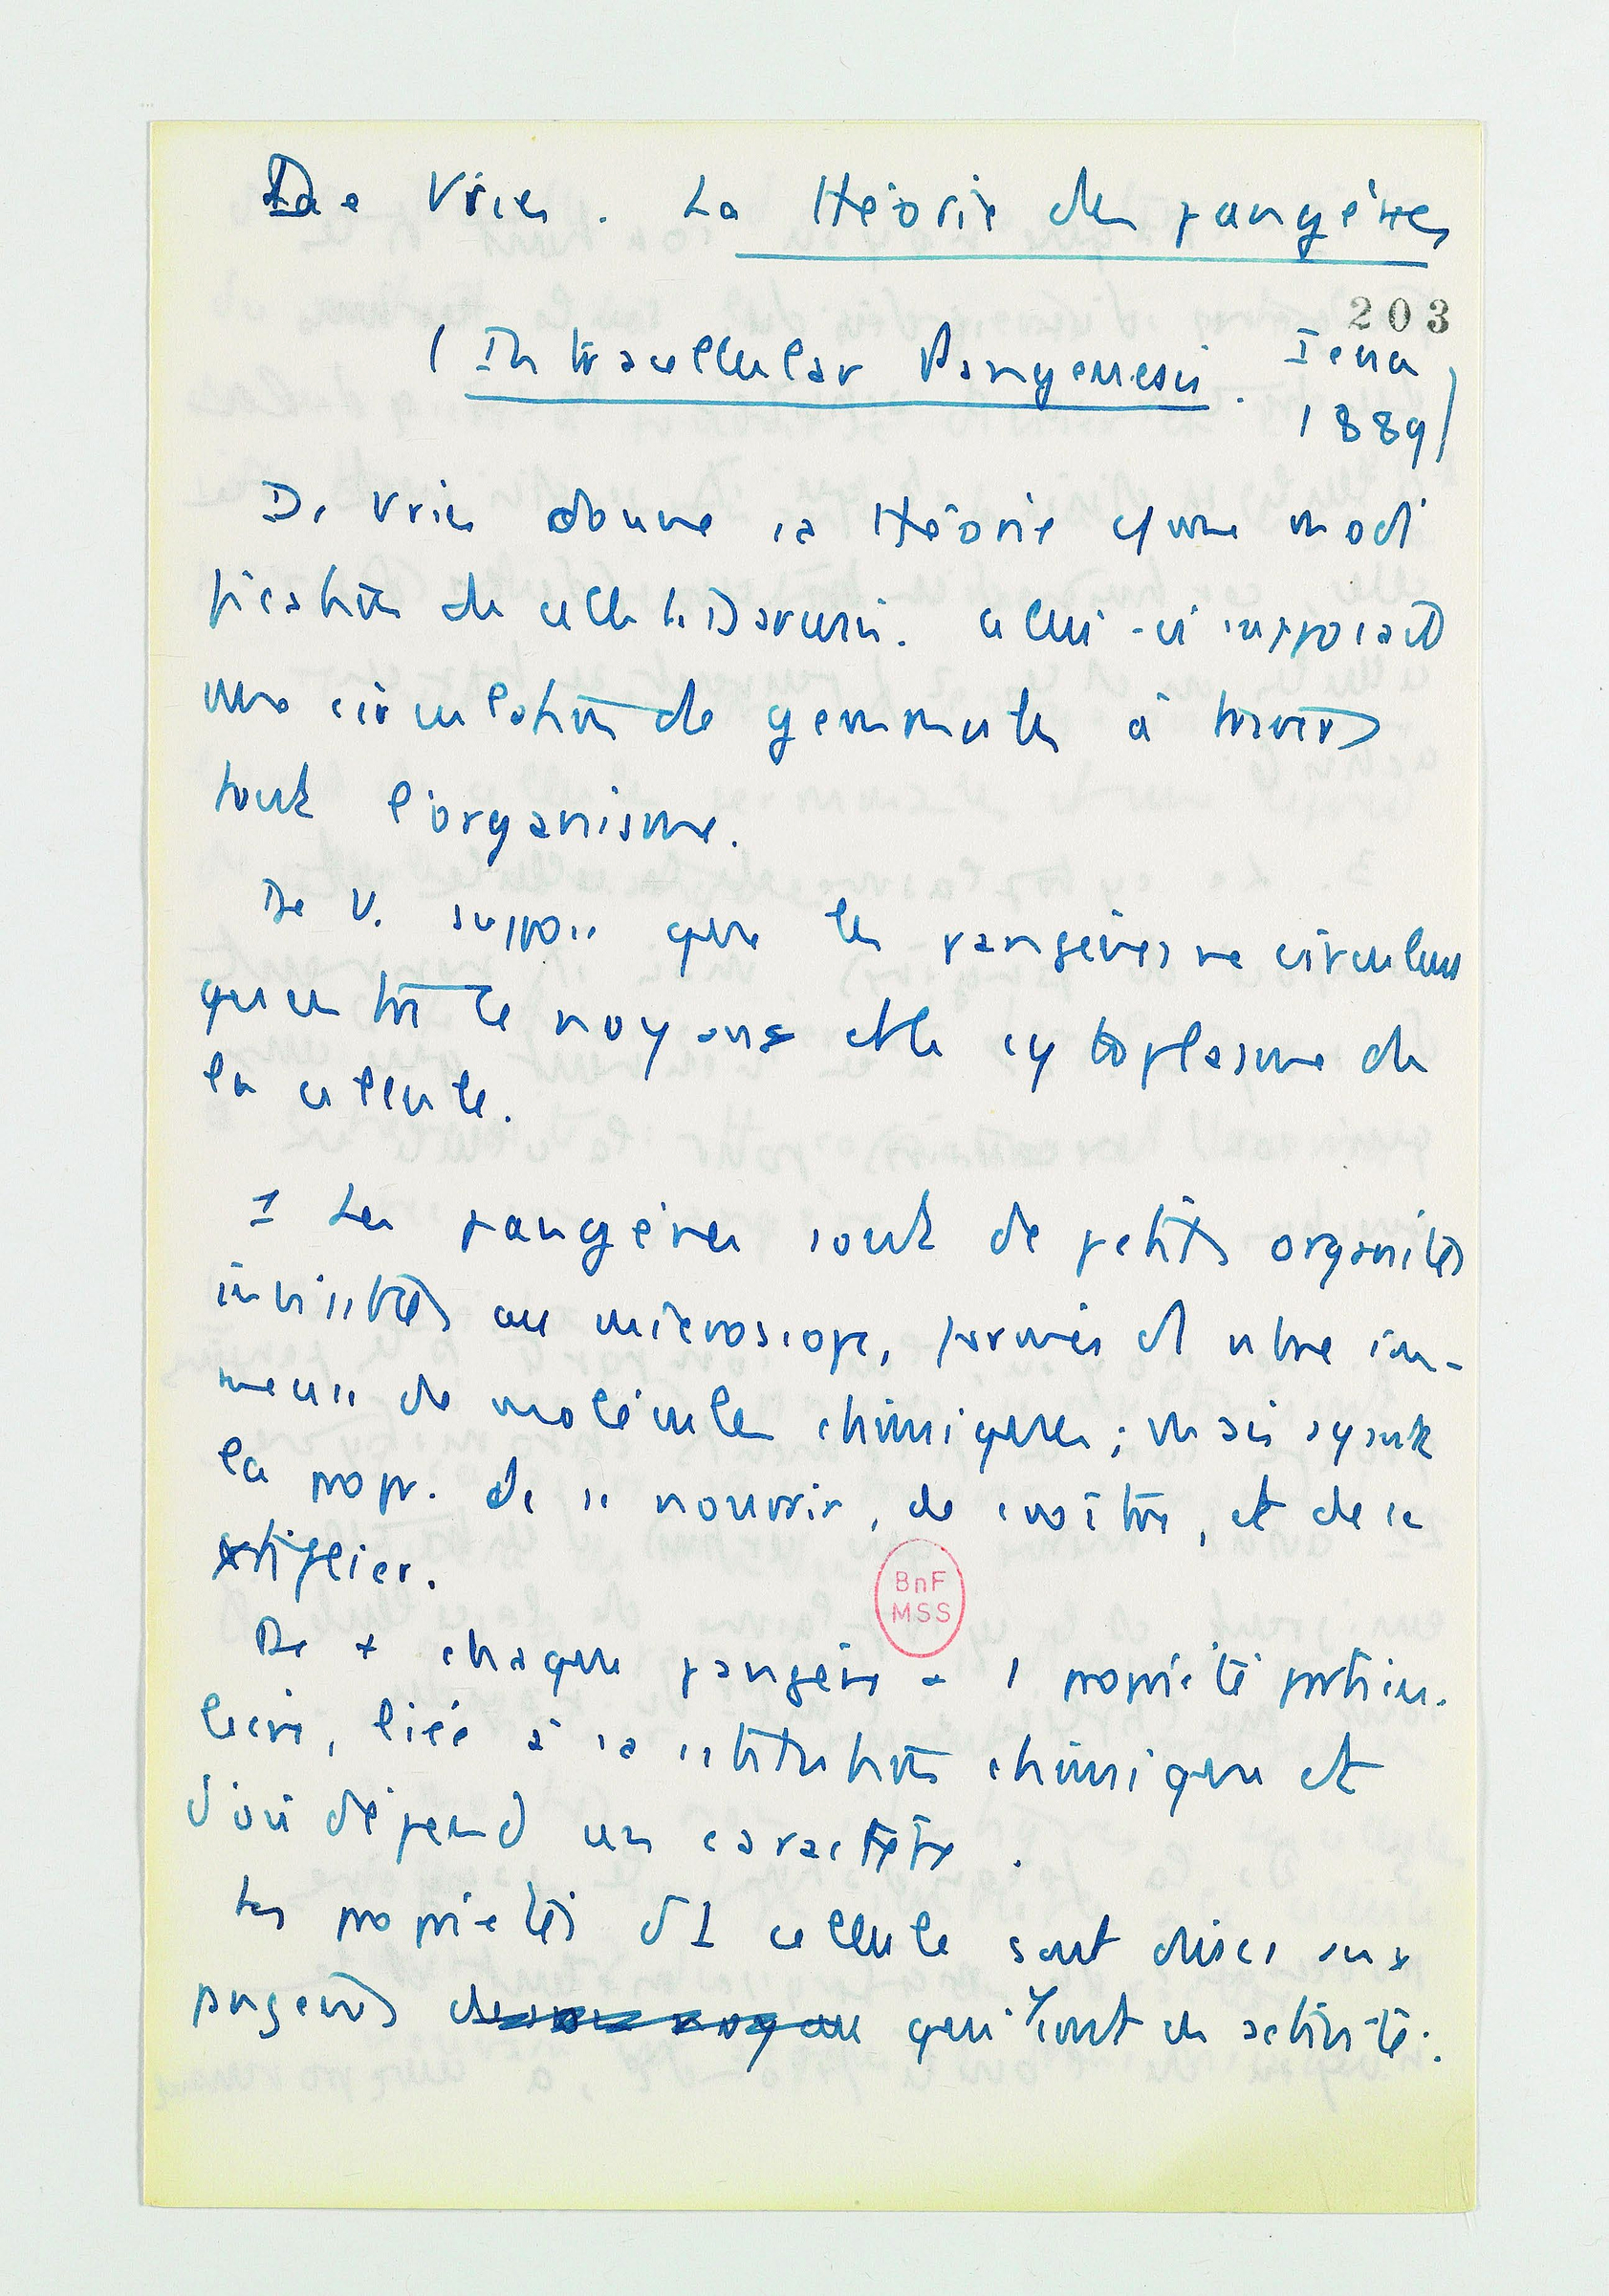 De Vries. La théorie des pangènes
203
(Intracellular Pangenesis. Iena
1889)
De Vries donne sa théorie comme modi
fication de celle de Darwin. Celui-ci supposait
une circulation de gemmules à travers
tout l'organisme.
De V. suppose que les pangènes ne circulent
qu'entre le noyau et le cytoplasme de
la cellule.
1 Les pangènes sont de petits organites
invisibles au microscope, formés d'1 nbre im-
mense de molécules chimiques ; mais ayant
la propr. de se nourrir, de croître, et de se
De + chaque pangène a 1 propriété particu-
lière, liée à sa constitution chimique et
d'où dépend un caractère.
Les propriétés d'1 cellule sont dues aux
pangènes qui y sont en activité.
BnF
MSS